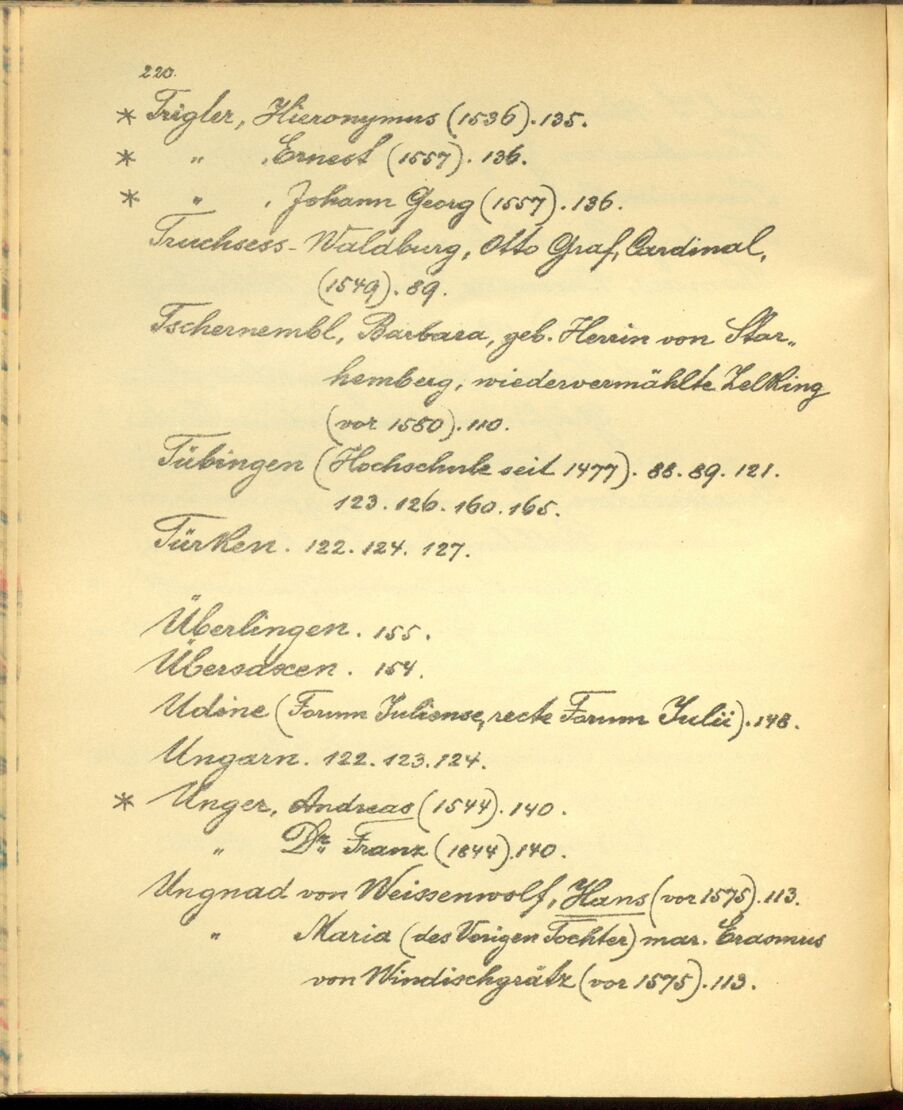 220.
* Trigler, Hieronymus (1536). 135.
* " , Ernest (1557). 136.
* " , Johann Georg (1557). 136.
Truchsess-Waldburg, Otto Graf, Cardinal,
(1549). 89.
Tschernembl, Barbara, geb. Herrin von Star„
hemberg, wiedervermählte Zelking
(vor 1580). 110.
Tübingen (Hochschule seit 1477). 88. 89. 121.
123. 126. 160. 165.
Türken. 122. 124. 127.
Überlingen. 155.
Übersaxen. 154.
Udine (Forum Juliense, recte Forum Julii). 148.
Ungarn. 122. 123. 124.
* Unger, Andreas (1544). 140.
" Dr. Franz (1844). 140.
Ungnad von Weissenwolf, Hans (vor 1575). 113.
" Maria (des Vorigen Tochter) mar. Erasmus
von Windischgrätz (vor 1575). 113.